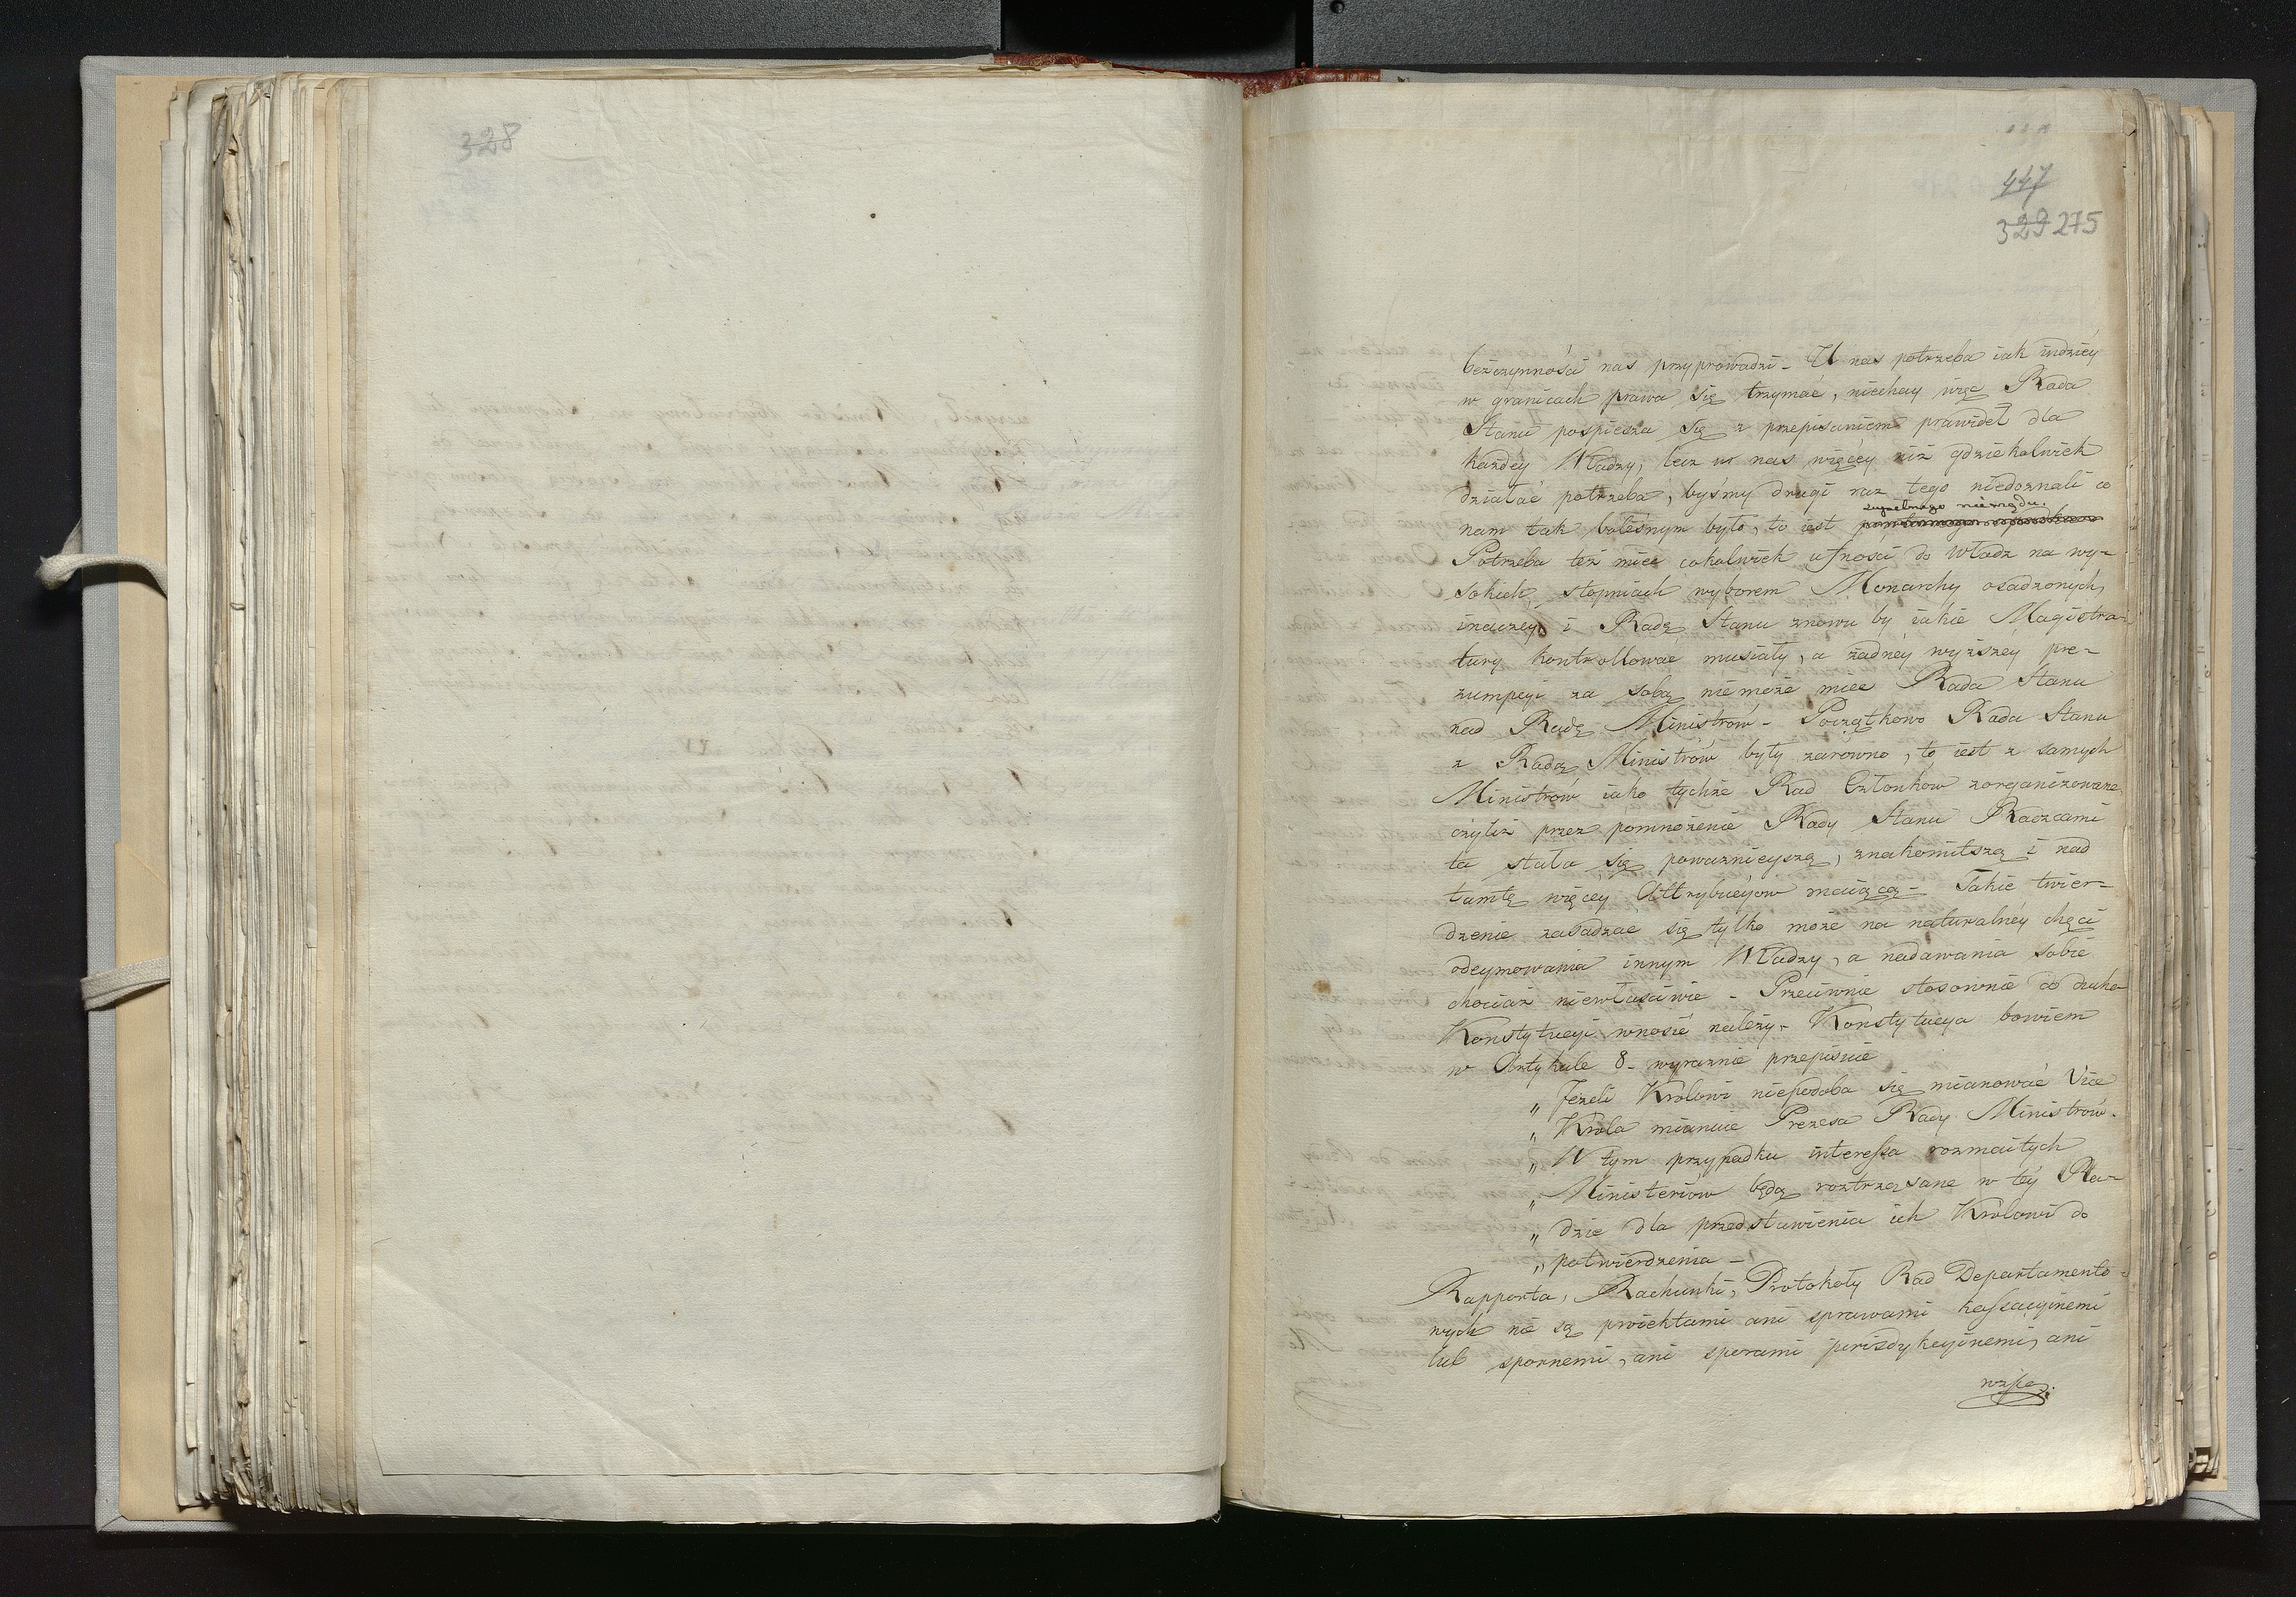 328
447
329 275
bezczynności nas przyprowadzi - U nas potrzeba iak indziéy
w granicach prawa się trzymać, niechay więc Rada
Stanu pospiesza się z przepisaniem prawideł dla
każdéy Władzy, lecz u nas więcéy niż gdziekolwiek
działać potrzeba, byśmy drugi raz tego niedoznali co
zupełnego nierządu.
nam tak bolesnym było, to iest
Potrzeba też mieć cokolwiek ufności do Władz na wy-
sokich stopniach wyborem Monarchy osadzonych,
inaczéy i Radę Stanu znowu by iakie Magistra-
tury kontrollować musiały, a żadnéy wyższéy pre-
zumpcyi za sobą niemoże mieć Rada Stanu
nad Radę Ministrów - Początkowo Rada Stanu
z Radą Ministrów były zarówno, to iest z samych
Ministrów iako tychże Rad Członków zorganizowane,
czyliż przez pomnożenie Rady Stanu Radzcami
ta stała się poważnieyszą, znakomitszą i nad
tamtę więcéy Attrybucyow maiącą - Takie twier-
dzenie zasadzać się tylko może na naturalnéy chęci
odeymowania innym Władzy, a nadawania sobie
chociaż niewłaściwie - Przeciwnie stosownie do ducha
Konstytucyi wnosić należy - Konstytucya bowiem
w Artykule 8. wyraznie przepisuie
„ Jeżeli Królowi niepodoba się mianować Vice
„ Króla mianuie Prezesa Rady Ministrów.
„ W tym przypadku interessa rozmaitych
„ Ministeriow będą roztrząsane w téy Ra-
„ dzie dla przedstawienia ich Królowi do
„ potwierdzenia -
Rapporta, Rachunki, Protokoły Rad Departamento-
wych nie są proiektami ani sprawami kassacyinemi
lub spornemi, ani sporami jurisdykcyinemi, ani